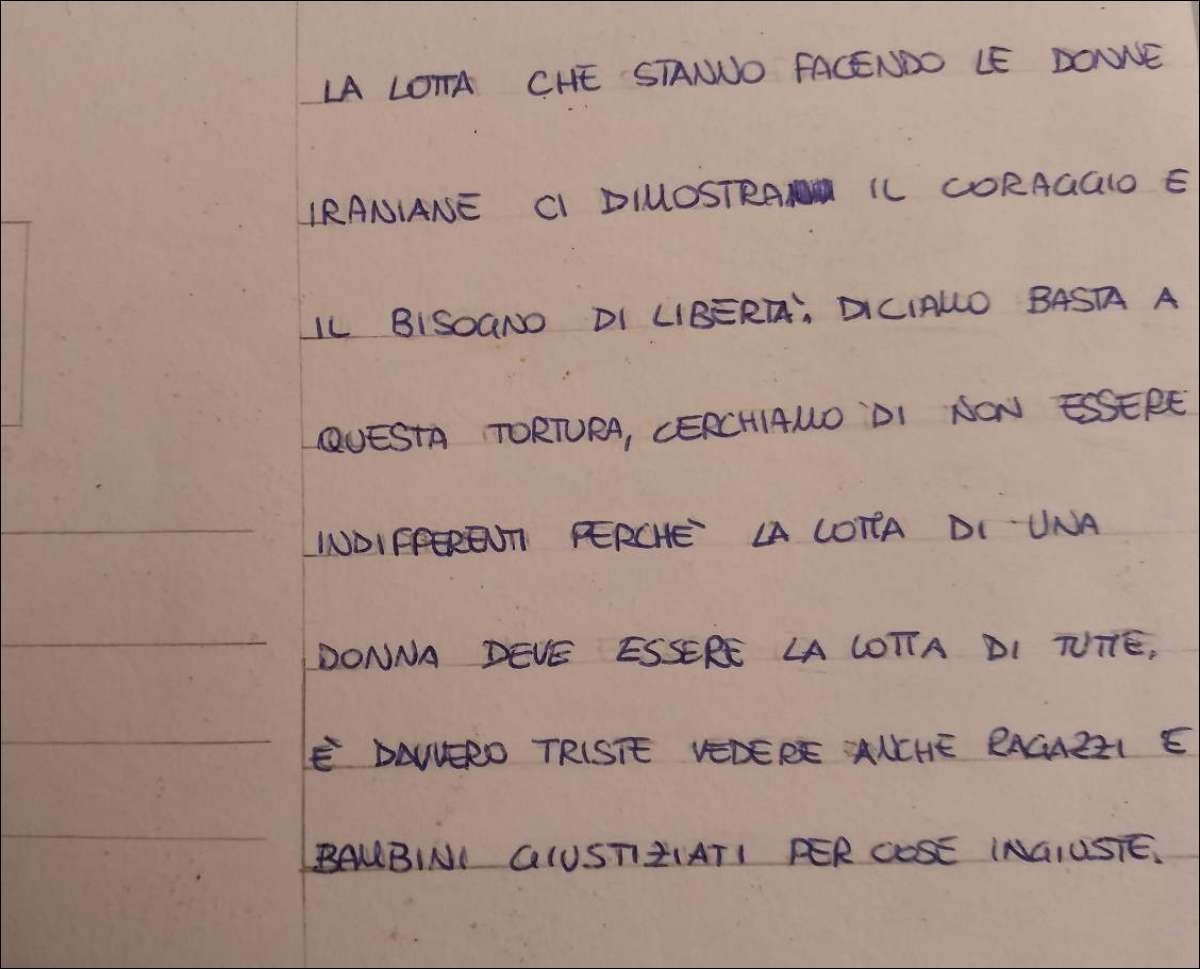 LA LOTTA CHE STANNO FACENDO LE DONNE
IRANIANE CI DIMOSTRA IL CORAGGIO E
IL BISOGNO DI LIBERTÀ. DICIAMO BASTA A
QUESTA TORTURA, CERCHIAMO DI NON ESSERE
INDIFFERENTI PERCHÈ LA LOTTA DI UNA
DONNA DEVE ESSERE LA LOTTA DI TUTTE.
È DAVVERO TRISTE VEDERE ANCHE RAGAZZI E
BAMBINI GIUSTIZIATI PER COSE INGIUSTE.